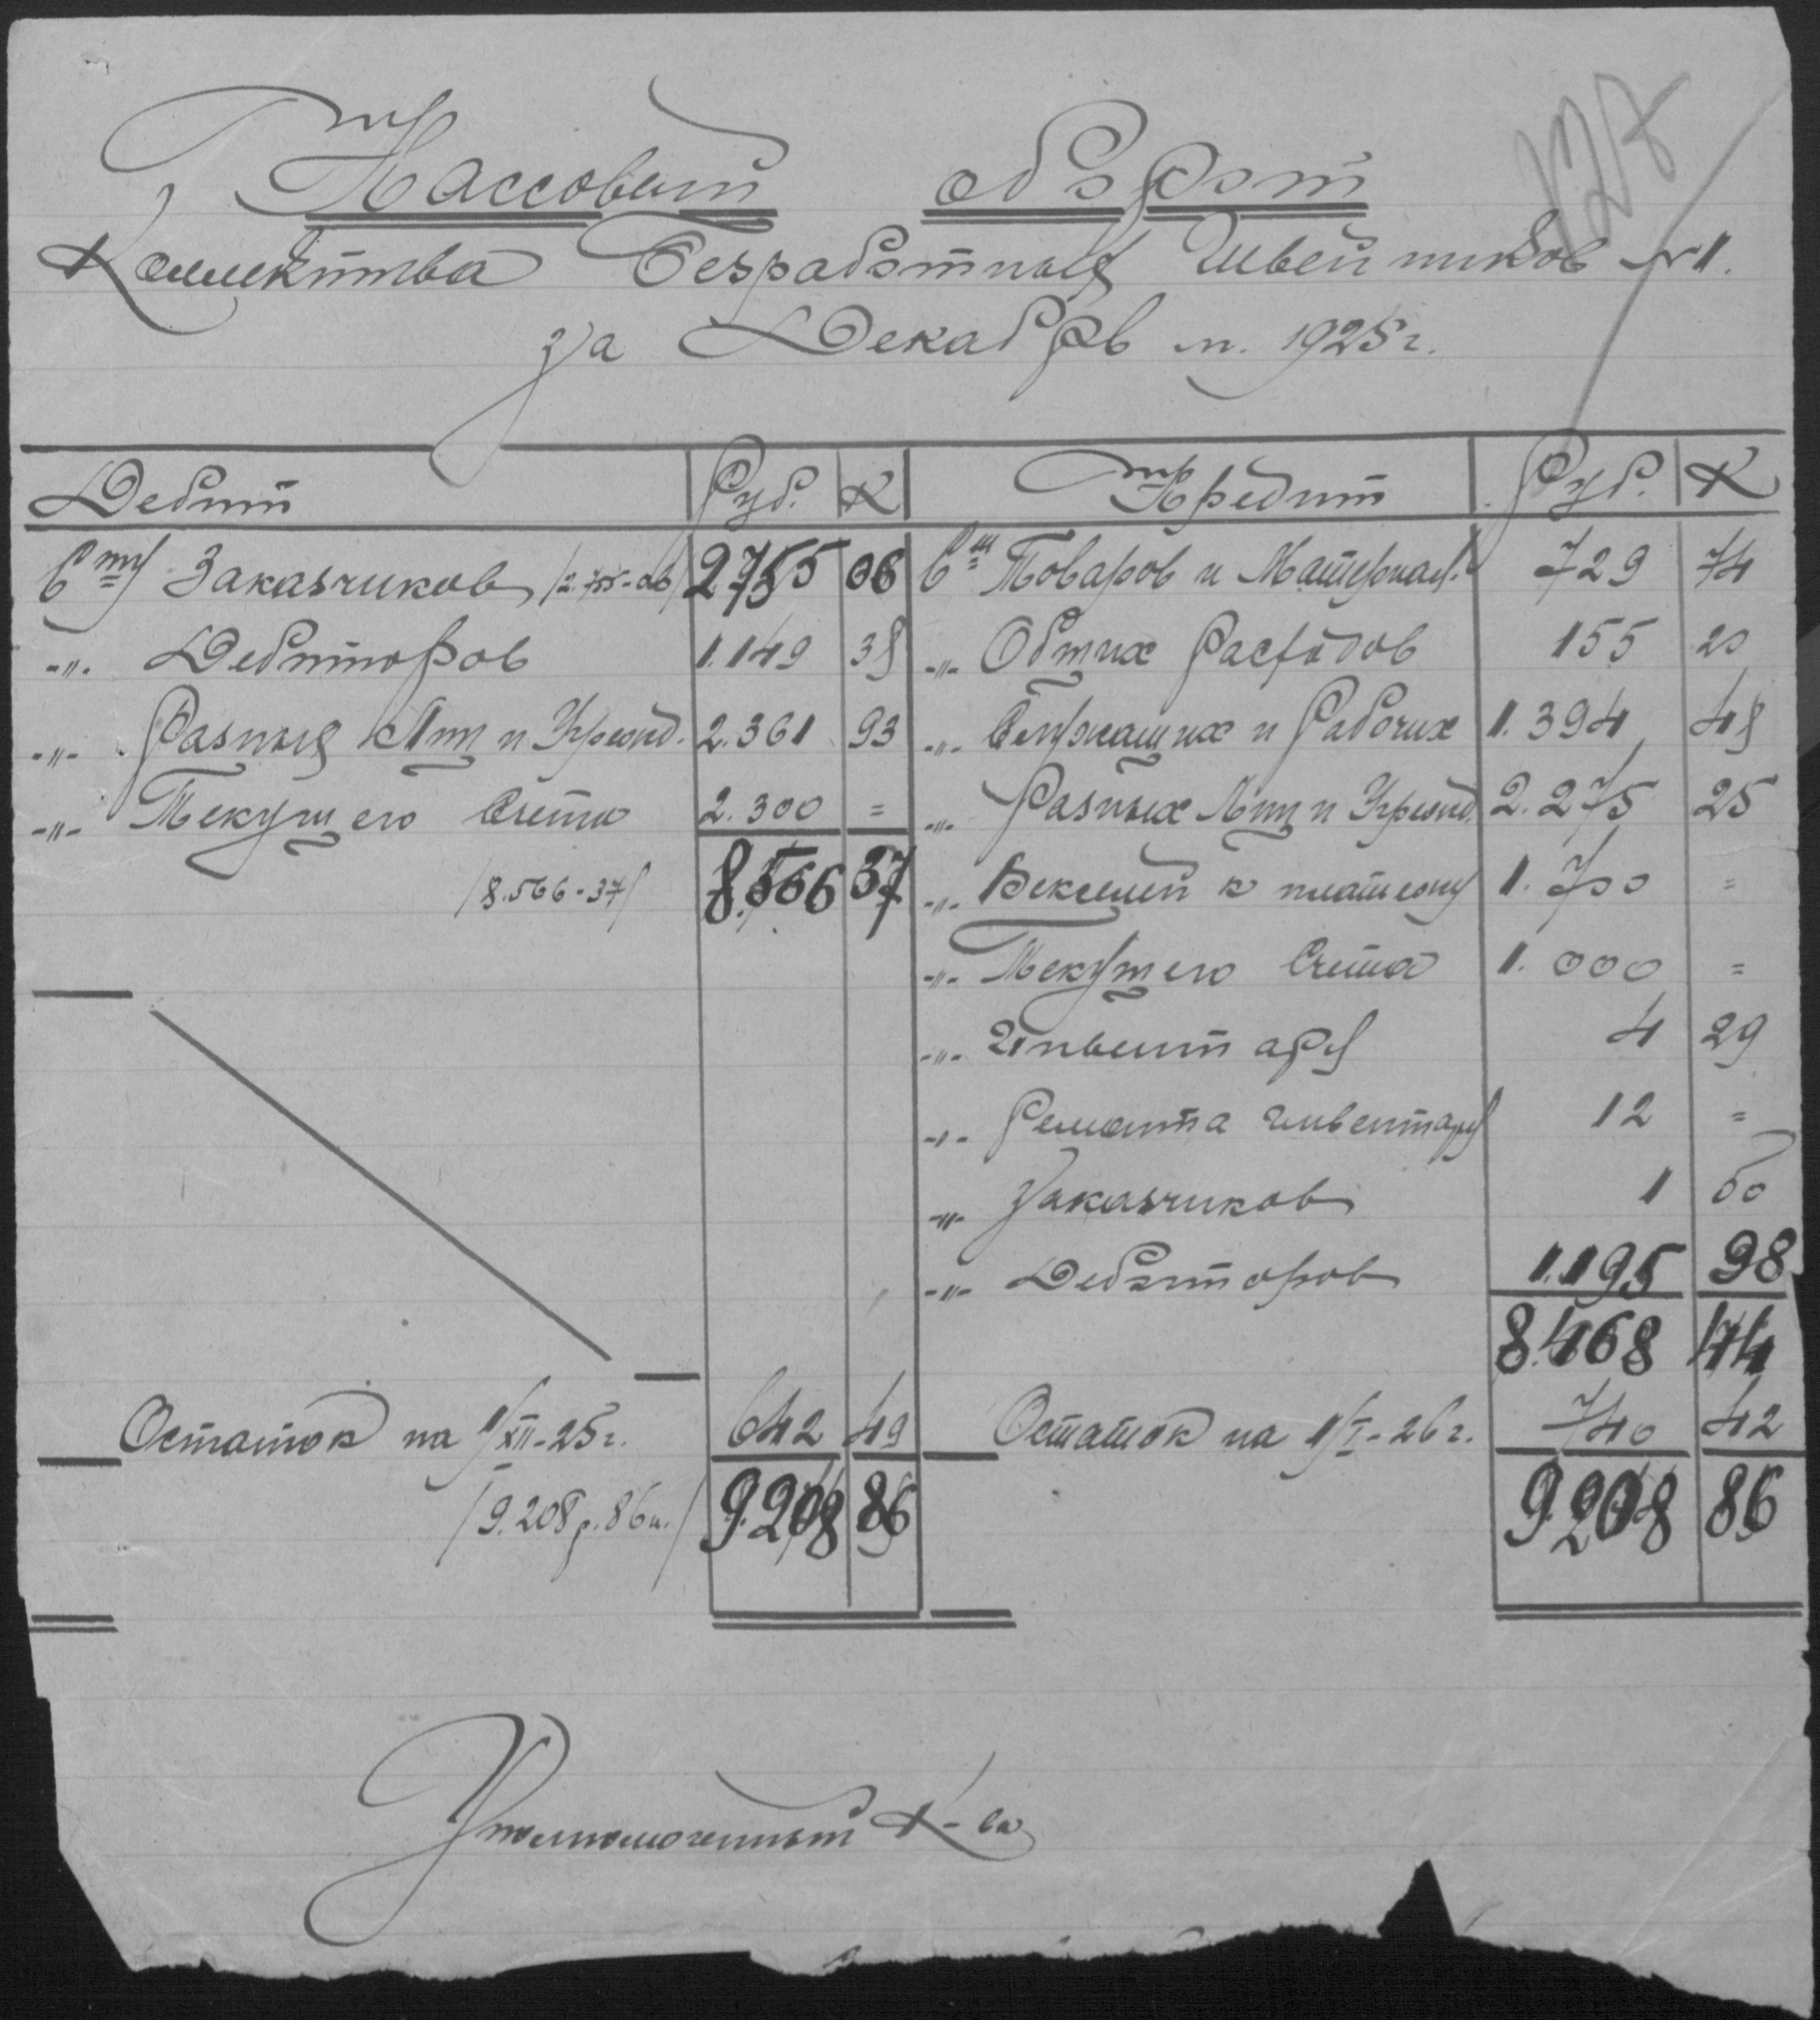 127
Кассовый оборот
Коллектива Безработных Швейников №1.
за Декабрь м. 1925 г.
Дебит Руб. К Кредит Руб. К
Сту Заказчиков /2.755-06/ 2755 06 Сч Товаров и Материал. 729 74
-"- Дебиторов 1.149 38 -"- Общих Расходов 155 20
-"- Разных Лиц и Учрежд. 2.361 93 -"- Служащих и Рабочих 1.394 48
-"- Текущего Счета 2.300 = -"- Разных Лиц и Учрежд. 2.275 25
/8.566-37/ 8.566 37 -"- Векселей к платежу 1.700 =
-"- Текущего Счета 1.000 =
-"- Инвентаря 4 29
-"- Ремонта инвентаря 12 =
-"- Заказчиков 1 80
-"- Дебиторов 1.195 98
8.468 44
Остаток на 1/XII-25 г. 642 49 Остаток на 1/I-26 г. 740 42
/9.208 р. 86 к./ 9.208 86 9208 86
Уполномоченный К-ва